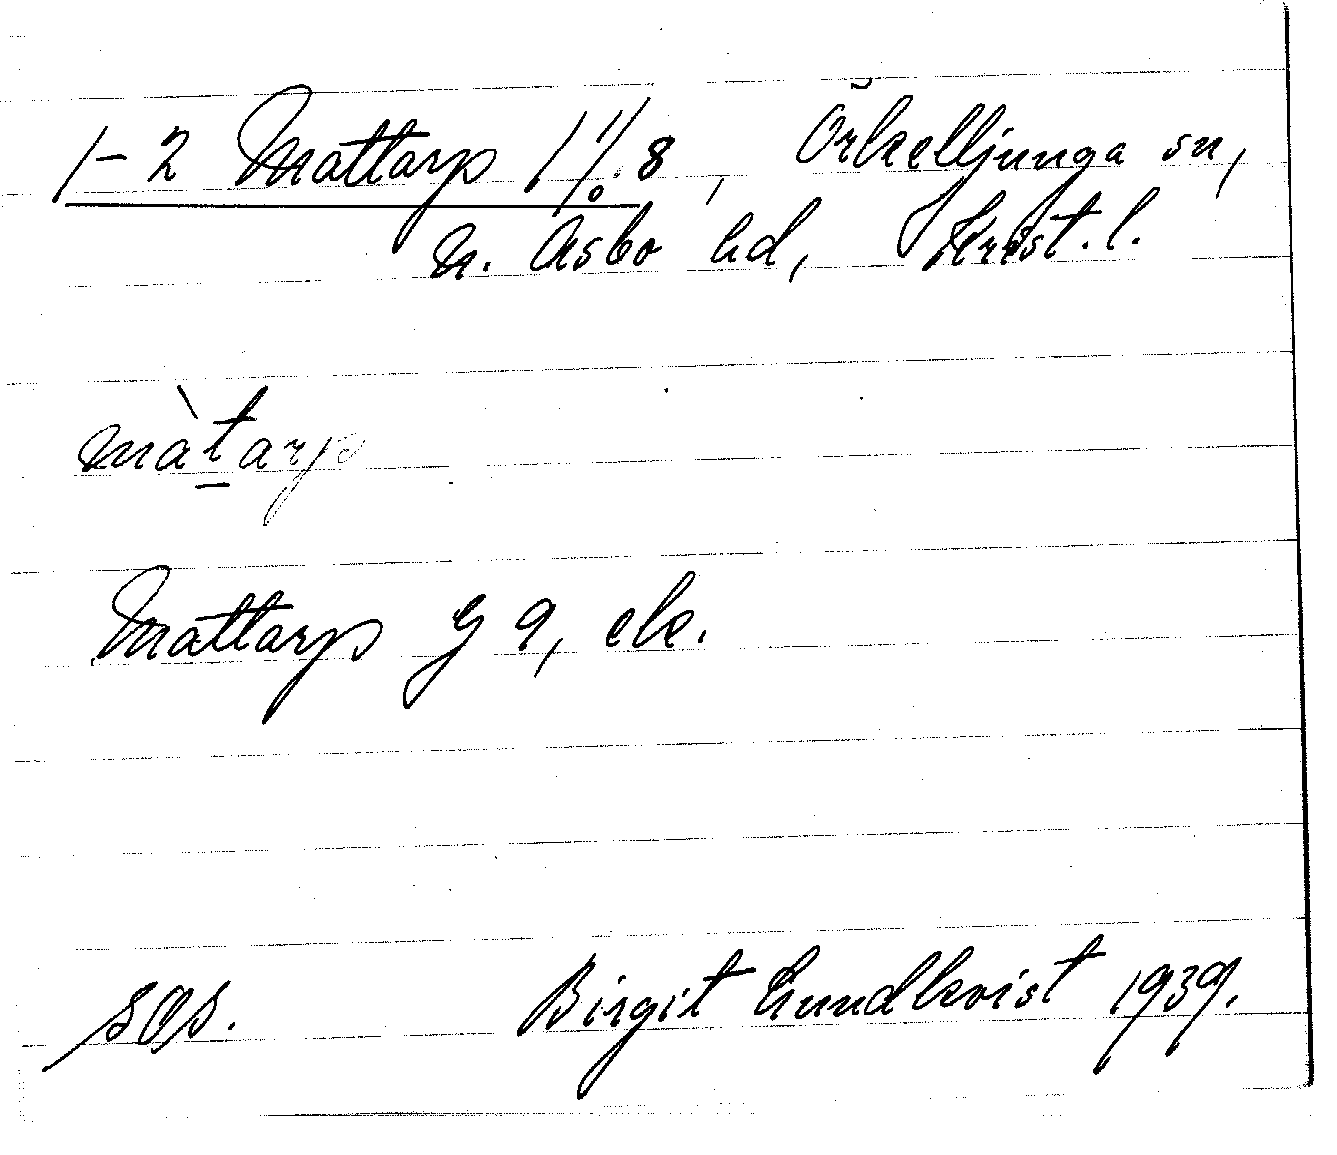 1-2 Mattarp 1 1/8, Örkelljunga sn,
N. Åsbo hd, Krist. l.
màtarp
Mattarp G 9, ek.
SOS.
Birgit Lundkvist 1939.